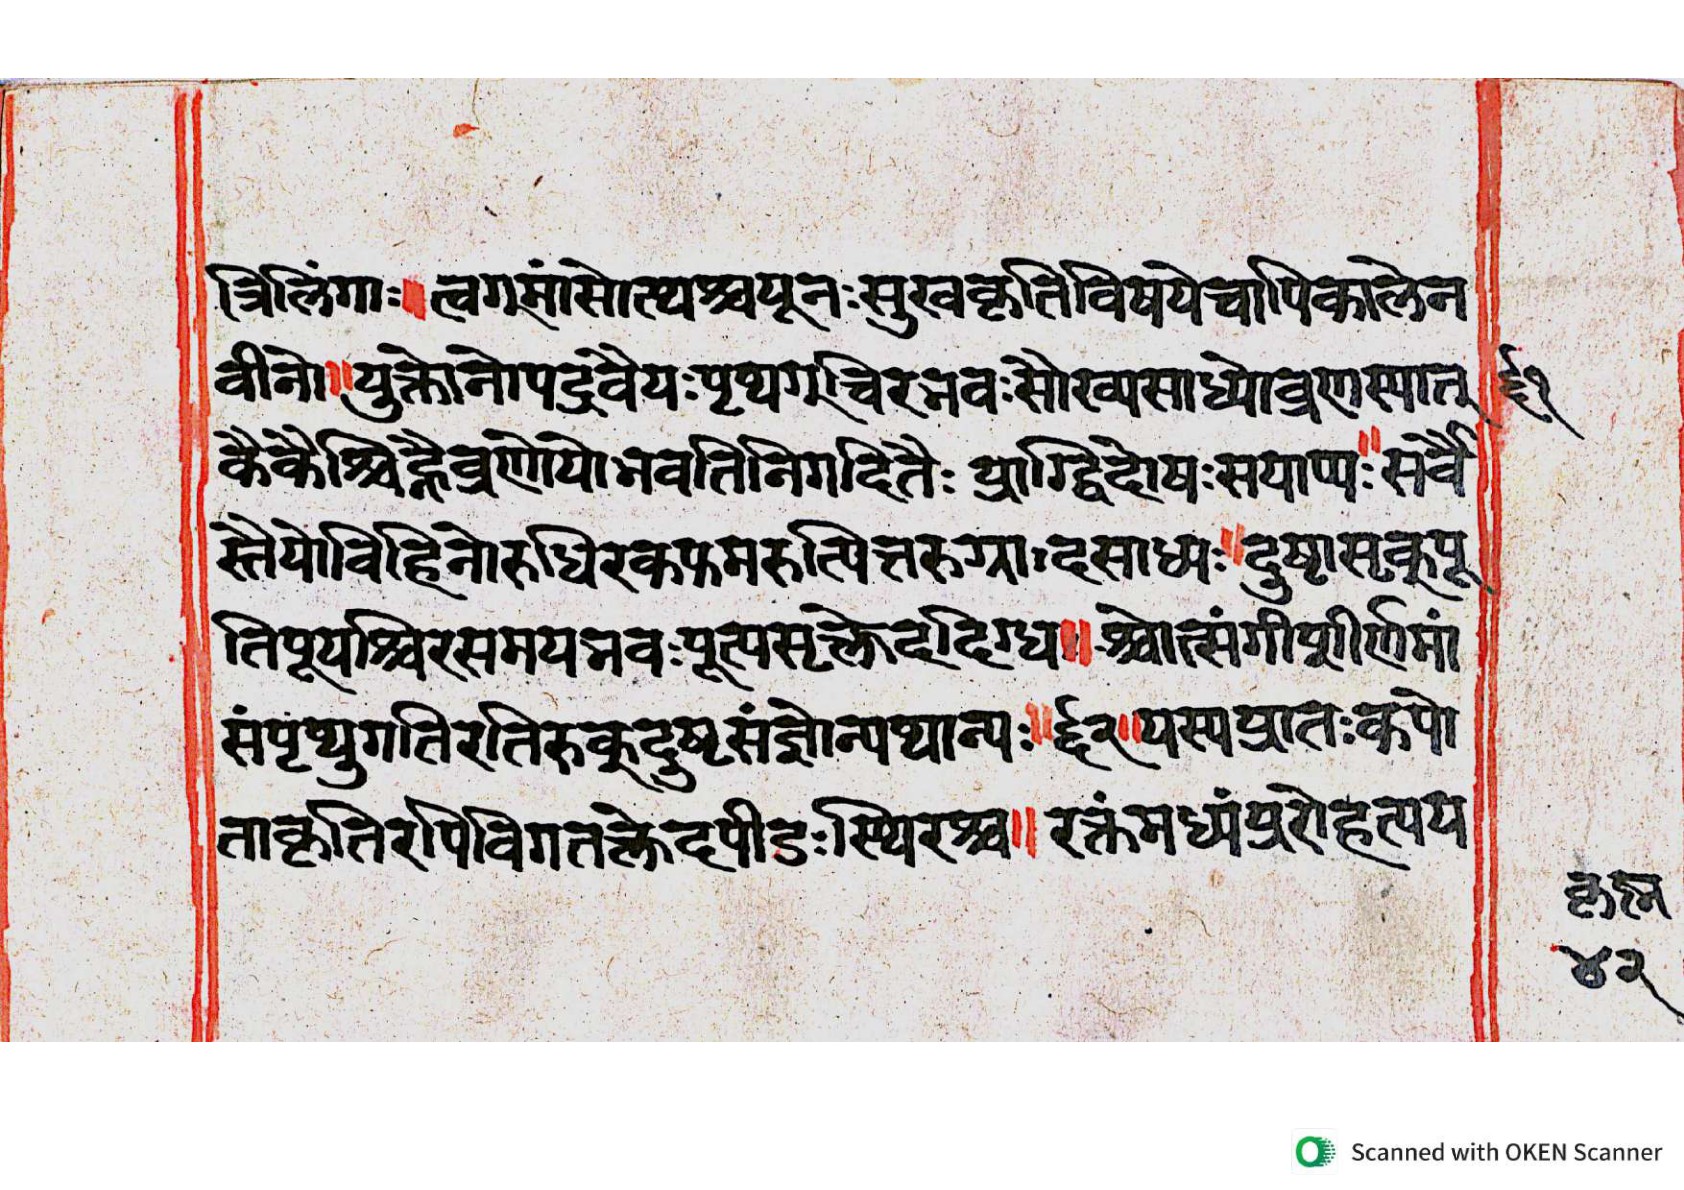 त्रिलिंगाः॥ त्वगूमांसोत्थश्चयूनःसुखकृतिविषयेचापिकालेन
वीनो॥युक्तोनोपद्रवैयःपृथगूचिरभवःसौख्यसाध्योव्रणस्पात् ६१
कैकैश्चिद्गैव्रणोयोभवतिनिगदितैः प्राग्द्विदोषःसयाप्यः॥सर्वै
स्तैयोविहिनोरुधिरकफमरुत्पित्तरुग्भादसाध्यः॥दुष्टासृक्पू
तिपूयश्चिरसमयभवःपूत्यसृक्लेददिग्ध॥श्चोत्संगीशीर्णमां
संपृथुगतिरतिरुक्दुष्टसंज्ञोन्यथान्यः॥६२॥यस्यप्रातःकपो
ताकृतिरपिविगतक्लेदपीडःस्थिरश्च॥ रक्तंमध्यंप्ररोहत्यय
४२
Scanned with OKEN Scanner